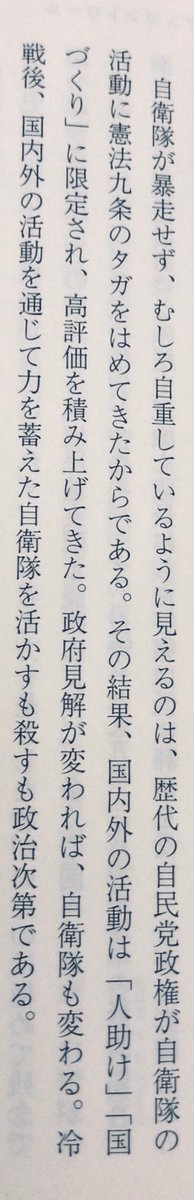 自衛隊が暴走せず、むしろ自重しているように見えるのは、歴代の自民党政権が自衛隊の
活動に憲法九条のタガをはめてきたからである。その結果、国内外の活動は「人助け」「国
づくり」に限定され、高評価を積み上げてきた。政府見解が変われば、自衛隊も変わる。冷
戦後、国内外の活動を通じて力を蓄えた自衛隊を活かすも殺すも政治次第である。